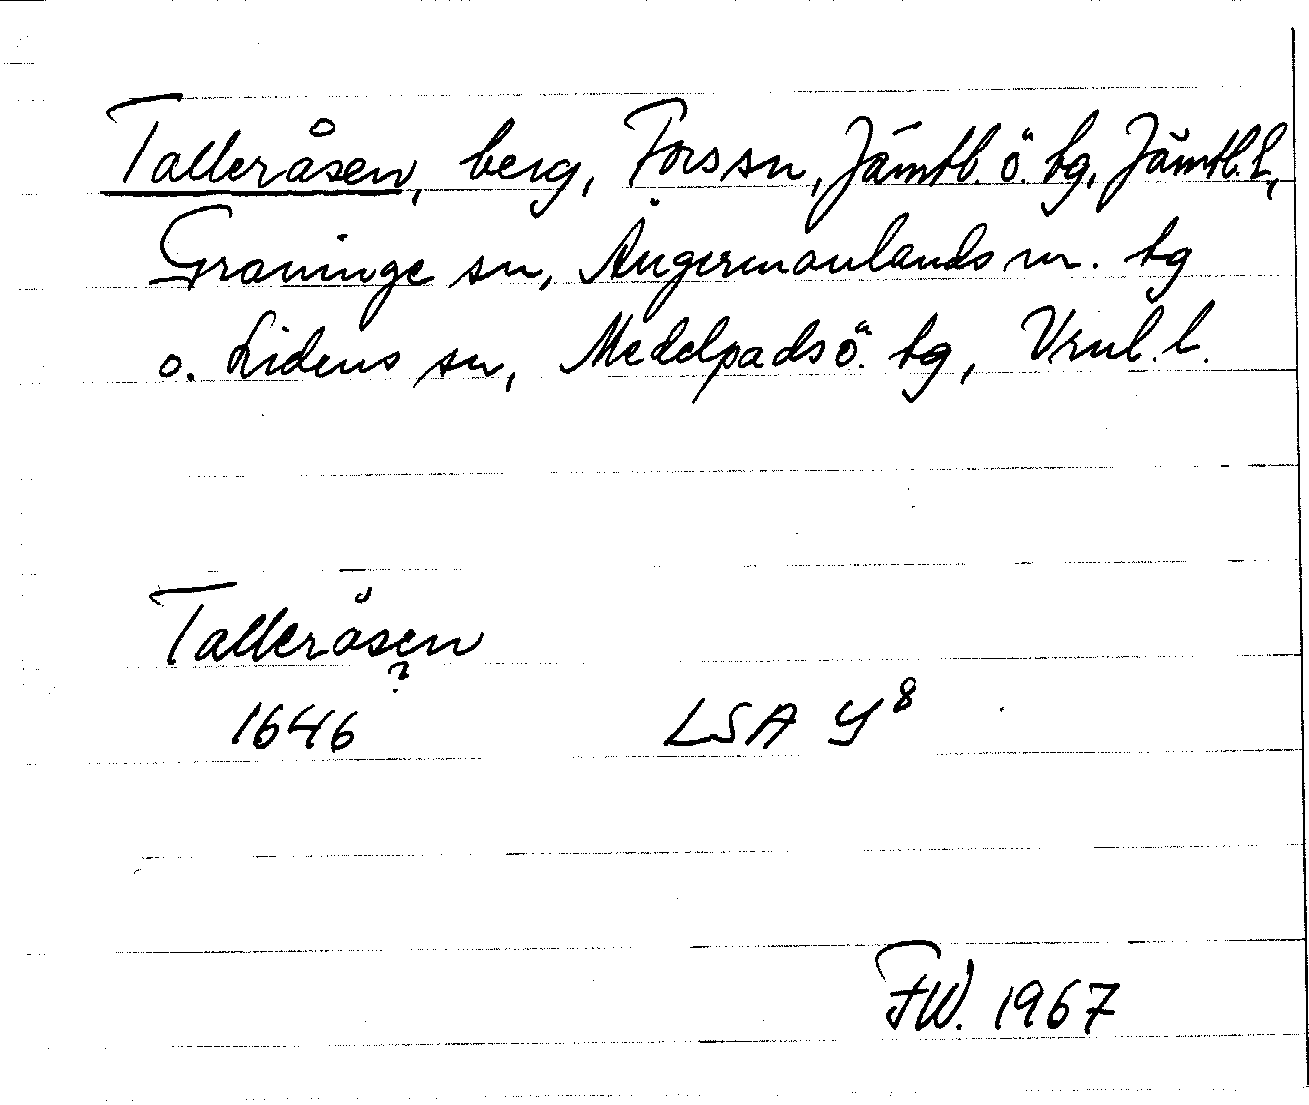 Talleråsen, berg, Fors sn, Jämtl. ö. tg, Jämtl. l.,
Graninge sn, Ångermanlands m. tg
o. Lidens sn, Medelpads ö. tg, Vrnl. l.
Talleråsen
?
1646 LSA Y8
FW. 1967